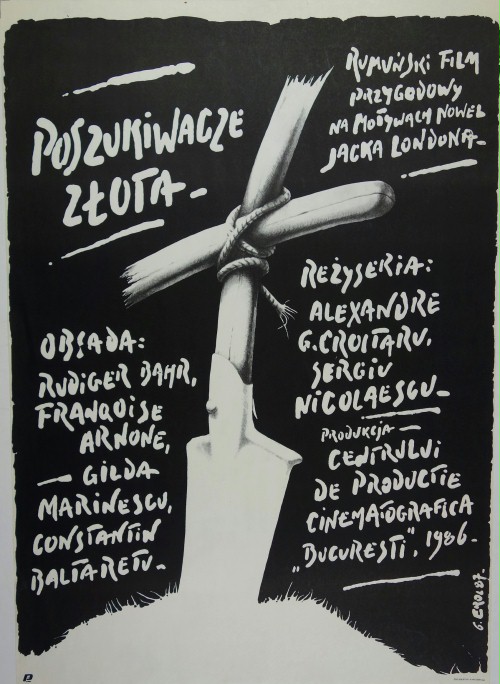 POSZUKIWACZE
ZŁOTA-
RUMUŃSKI FILM
PRZYGODOWY
NA MOTYWACH NOWEL
JACKA LONDONA-
REŻYSERIA:
ALEXANDRE
G. CROITARU,
SERGIU
NICOLAESCU-
PRODUKCJA-
CENTRULUI
DE PRODUCTIE
CINEMATOGRAFICA
„BUCURESTI", 1986-
OBSADA:
RUDIGER BAHR,
FRANQOISE
ARNONE,
- GILDA
MARINESCU,
CONSTANTIN
BALTARETU-